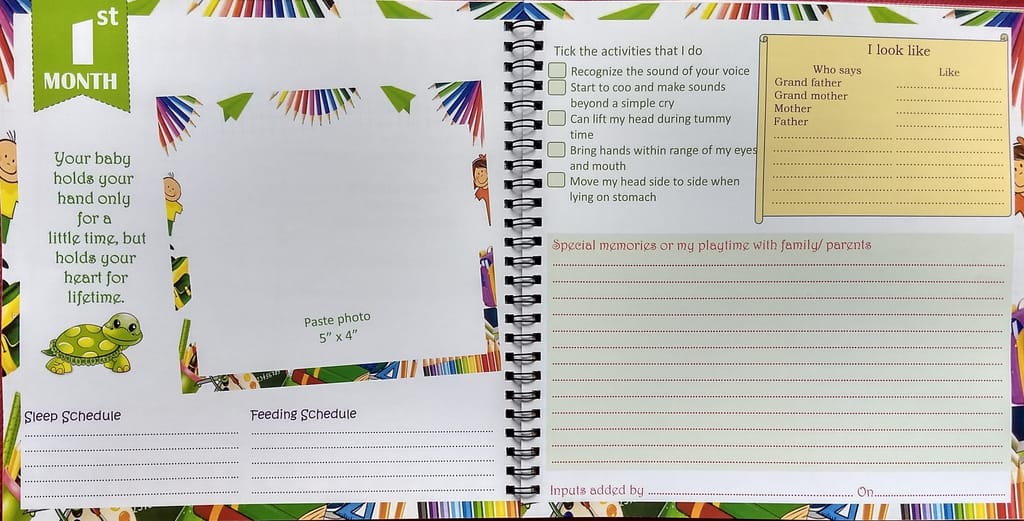 1st
MONTH
Your baby
holds your
hand only
for a
little time, but
holds your
heart for
lifetime.
Paste photo
5" x 4"
Sleep Schedule
Feeding Schedule
Tick the activities that I do
Recognize the sound of your voice
Start to coo and make sounds
beyond a simple cry
Can lift my head during tummy
time
Bring hands within range of my eyes
and mouth
Move my head side to side when
lying on stomach
I look like
Who says Like
Grand father
Grand mother
Mother
Father
Special memories or my playtime with family/ parents
Inputs added by On